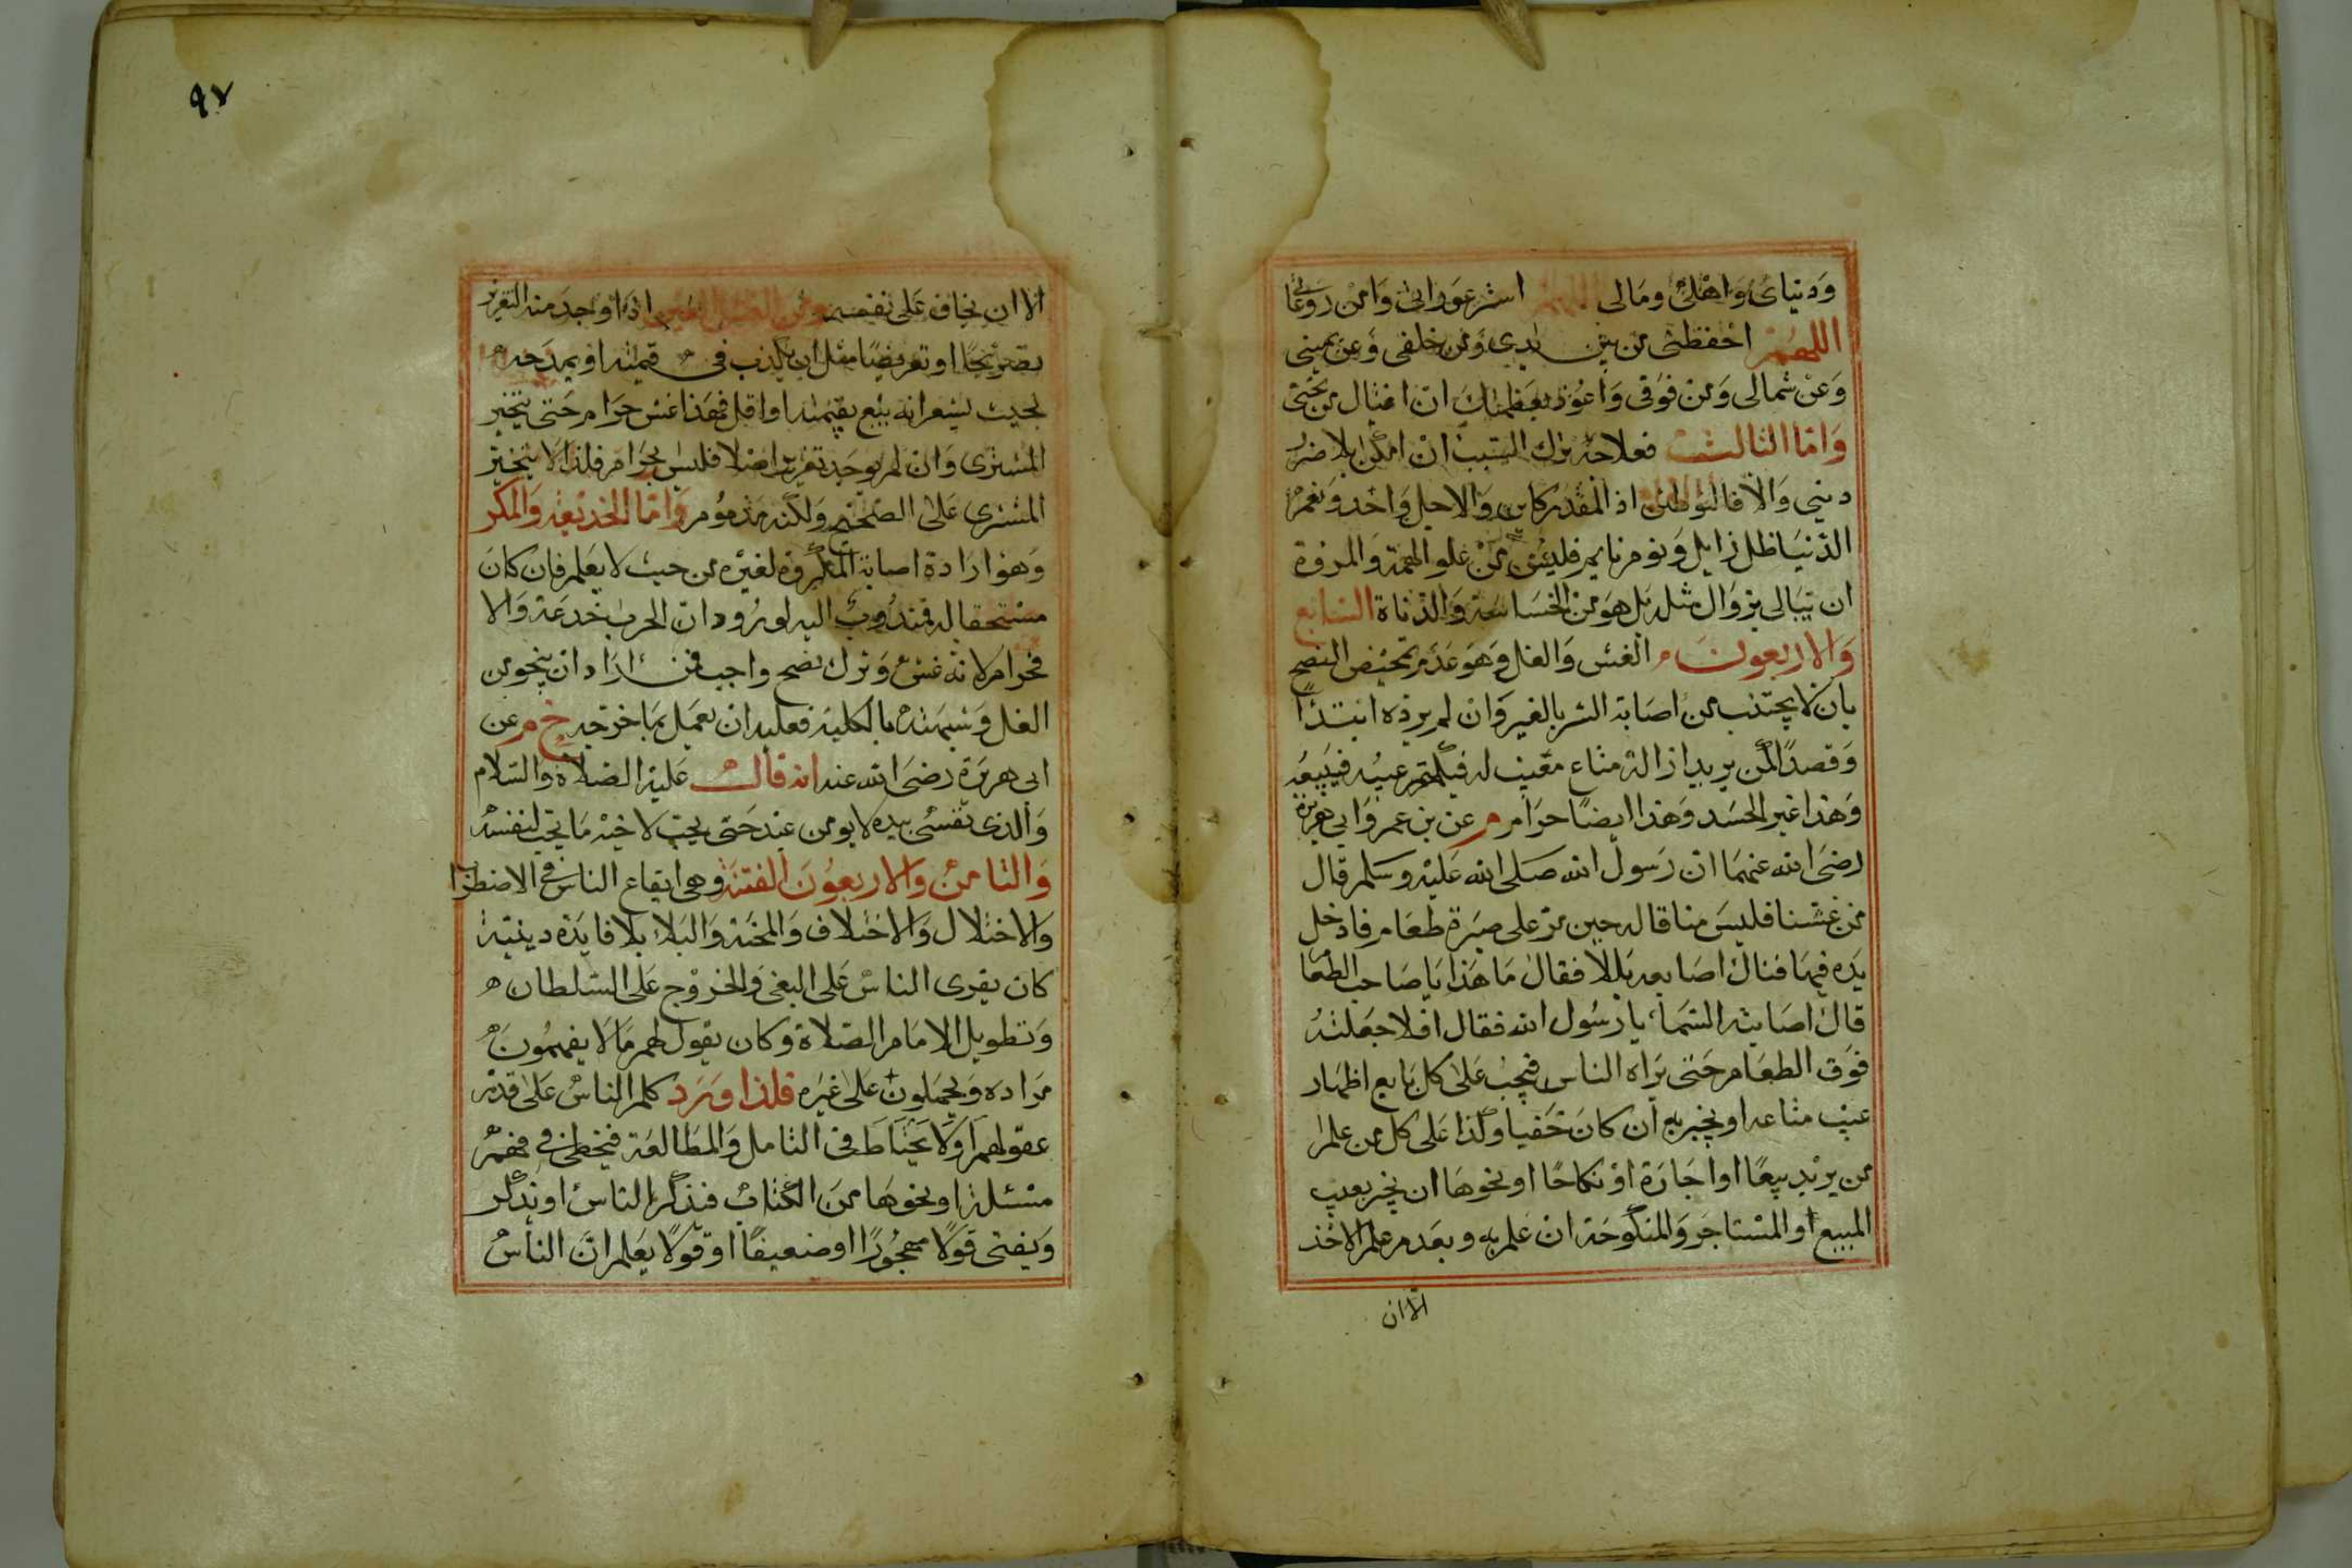 ودنياى واهلى ومالى اللهم استر عوراتى وامن روعاتى
اللهم احفظنى من بين يدى ومن خلفى وعن يمينى
وعن شمالى ومن فوقى واعوذ بعظمتك ان اغتال من تحتى
واما الثالث فعلاجه ترك السبب ان امكن بلا ضرر
دينى والا فالتوطين اذ المقدر كاين والاجل واحد ونعم
الدنيا ظل زايل ونوم نايم فليس من علو الهمة والمروة
ان تبالى بزوال مثله بل هو من الخساسة والدناة السابع
والاربعون الغش والغل وهو عدم تمحيض النصح
بان لا يجتنب من اصابة الشر بالغير وان لم يرده ابتدأ
وقصدا لمن يريد ازالة متاع معيب له فيكتم عيبه فيبيعه
وهذا غير الحسد وهذا ايضا حرام م عن بن عمر وابى هريرة
رضى الله عنهما ان رسول الله صلى الله عليه وسلم قال
من غشنا فليس منا قاله حين مر على صبرة طعام فادخل
يده فيها فنال اصابعه بللا فقال ما هذا يا صاحب الطعا
قال اصابته السماء يا رسول الله فقال افلا جعلته
فوق الطعام حتى يراه الناس فيجب على كل بايع اظهار
عيب متاعه او يخبر به ان كان خفيا وكذا على كل من علم
من يريد بيعا او اجارة او نكاحا او نحوها ان يخبر بعيب
المبيع او المستاجر والمنكوحة ان علم به وبعدم علم الاخذ
الا ان
٩٧
الا ان يخاف على نفسه ومن الغش الغبن اذا وجد منه التغرير
تصريحا او تعريضا مثل ان يكذب فى قيمته او يمدحه
بحيث يشعر انه يبيع بقيمته او اقل فهذا غش حرام حتى يتخير
المشترى وان لم يوجد تغرير اصلا فليس بحرام فلذا لا يتخير
المشترى على الصحيح ولكنه مذموم واما الخديعة والمكر
وهو ارادة اصابة المكروه لغيره من حيث لا يعلم فان كان
مستحقا له فمندوب اليه لورود ان الحرب خدعة والا
فحرام لانه غش وترك نصح واجب فمن اراد ان ينجو من
الغل وشبهته بالكلية فعليه ان يعمل بما خرجه خ م عن
ابى هريرة رضى الله عنه انه قال عليه الصلاة والسلام
والذى نفسى بيده لا يومن عبد حتى يحب لاخيه ما يحب لنفسه
والثامن والاربعون الفتنة وهى ايقاع الناس فى الاضطراب
والاختلال والاختلاف والمحنة والبلاء بلا فايدة دينية
كان يغرى الناس على البغى والخروج على السلطان
وتطويل الامام الصلاة وكان يقول لهم ما لا يفهمون
مراده ويحملون على غيره فلذا ورد كلم الناس على قدر
عقولهم او لا يحتاط فى التامل والمطالعة فيخطئ فى فهم
مسئلة او نحوها من الكتاب فيذكر الناس او يذكر
ويفتى قولا مهجورا او ضعيفا او قولا يعلم ان الناس